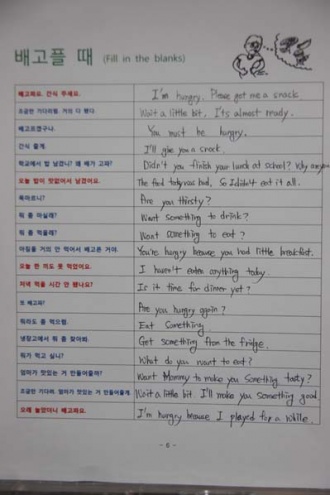 배고플 때 (Fill in the blanks)
배고파요. 간식 주세요. I'm hungry. Please get me a snack
조금만 기다려줘. 거의 다 됐다. Wait a little bit. It's almost ready.
배고프겠구나. You must be hungry.
간식 줄게. I'll give you a snack.
학교에서 밥 남겼니? 왜 배가 고파? Didn't you finish your lunch at school? Why
오늘 밥이 맛없어서 남겼어요. The food today was bad, So I didn't eat it all.
목마르니? Are you thirsty?
뭐 좀 마실래? Want something to drink?
뭐 좀 먹을래? Want something to eat?
아침을 거의 안 먹어서 배고픈 거야. You're hungry because you had little breakfast.
오늘 한 끼도 못 먹었어요. I haven't eaten anything today.
저녁 먹을 시간 안 됐나요? Is it time for dinner yet?
또 배고파? Are you hungry again?
뭐라도 좀 먹으렴. Eat something.
냉장고에서 뭐 좀 찾아봐. Get something from the fridge.
뭐가 먹고 싶니? What do you want to eat?
엄마가 맛있는 거 만들어줄까? Want Mommy to make you something tasty?
조금만 기다려. 엄마가 맛있는 거 만들어줄게. Wait a little bit. I'll make you something good.
오래 놀았더니 배고파요. I'm hungry because I played for a while.
- 6 -